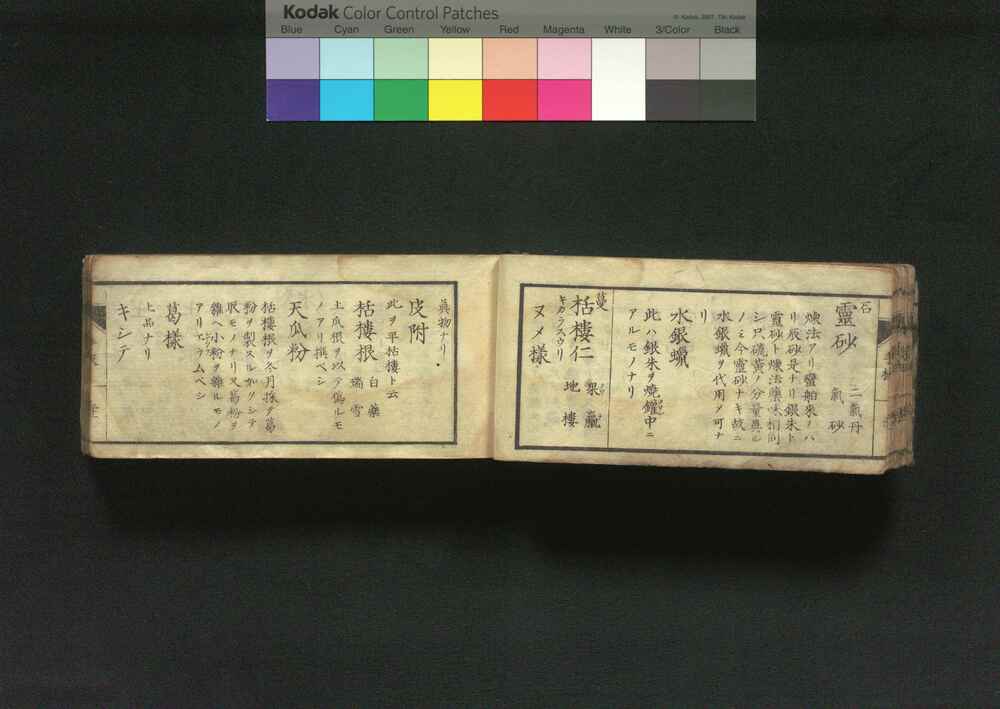 Kodak Color Control Patches
© Kodak, 2007. TM: Kodak
Blue Cyan Green Yellow Red Magenta White 3/Color Black
石
靈砂 二氣丹 氣砂
煉法アリ蠻舶來ノハ
リ辰砂是ナリ銀朱ト
靈砂ト煉法藥味相同
シ只硫黄ノ分量異ル
ノミ今靈砂ナキ故ニ
水銀蠟ヲ代用メ可ナ
リ
水銀蠟
此ハ銀朱ヲ燒鑵中ニ
アルモノナリ
蔓
栝樓仁 果臝 地樓
キカラスウリ
ヌメ樣
異物ナリ
皮附
此ヲ平栝樓ト云
栝樓根 白藥 瑞雪
土瓜根ヲ以テ偽ルモ
ノアリ撰ベシ
天瓜粉
栝樓根ヲ冬月採テ葛
粉ヲ製スル如クシテ
取モノナリ又葛粉ヲ
雜ヘ小粉ヲ雜ルモノ
アリエラムベシ
葛樣
上品ナリ
キシテ